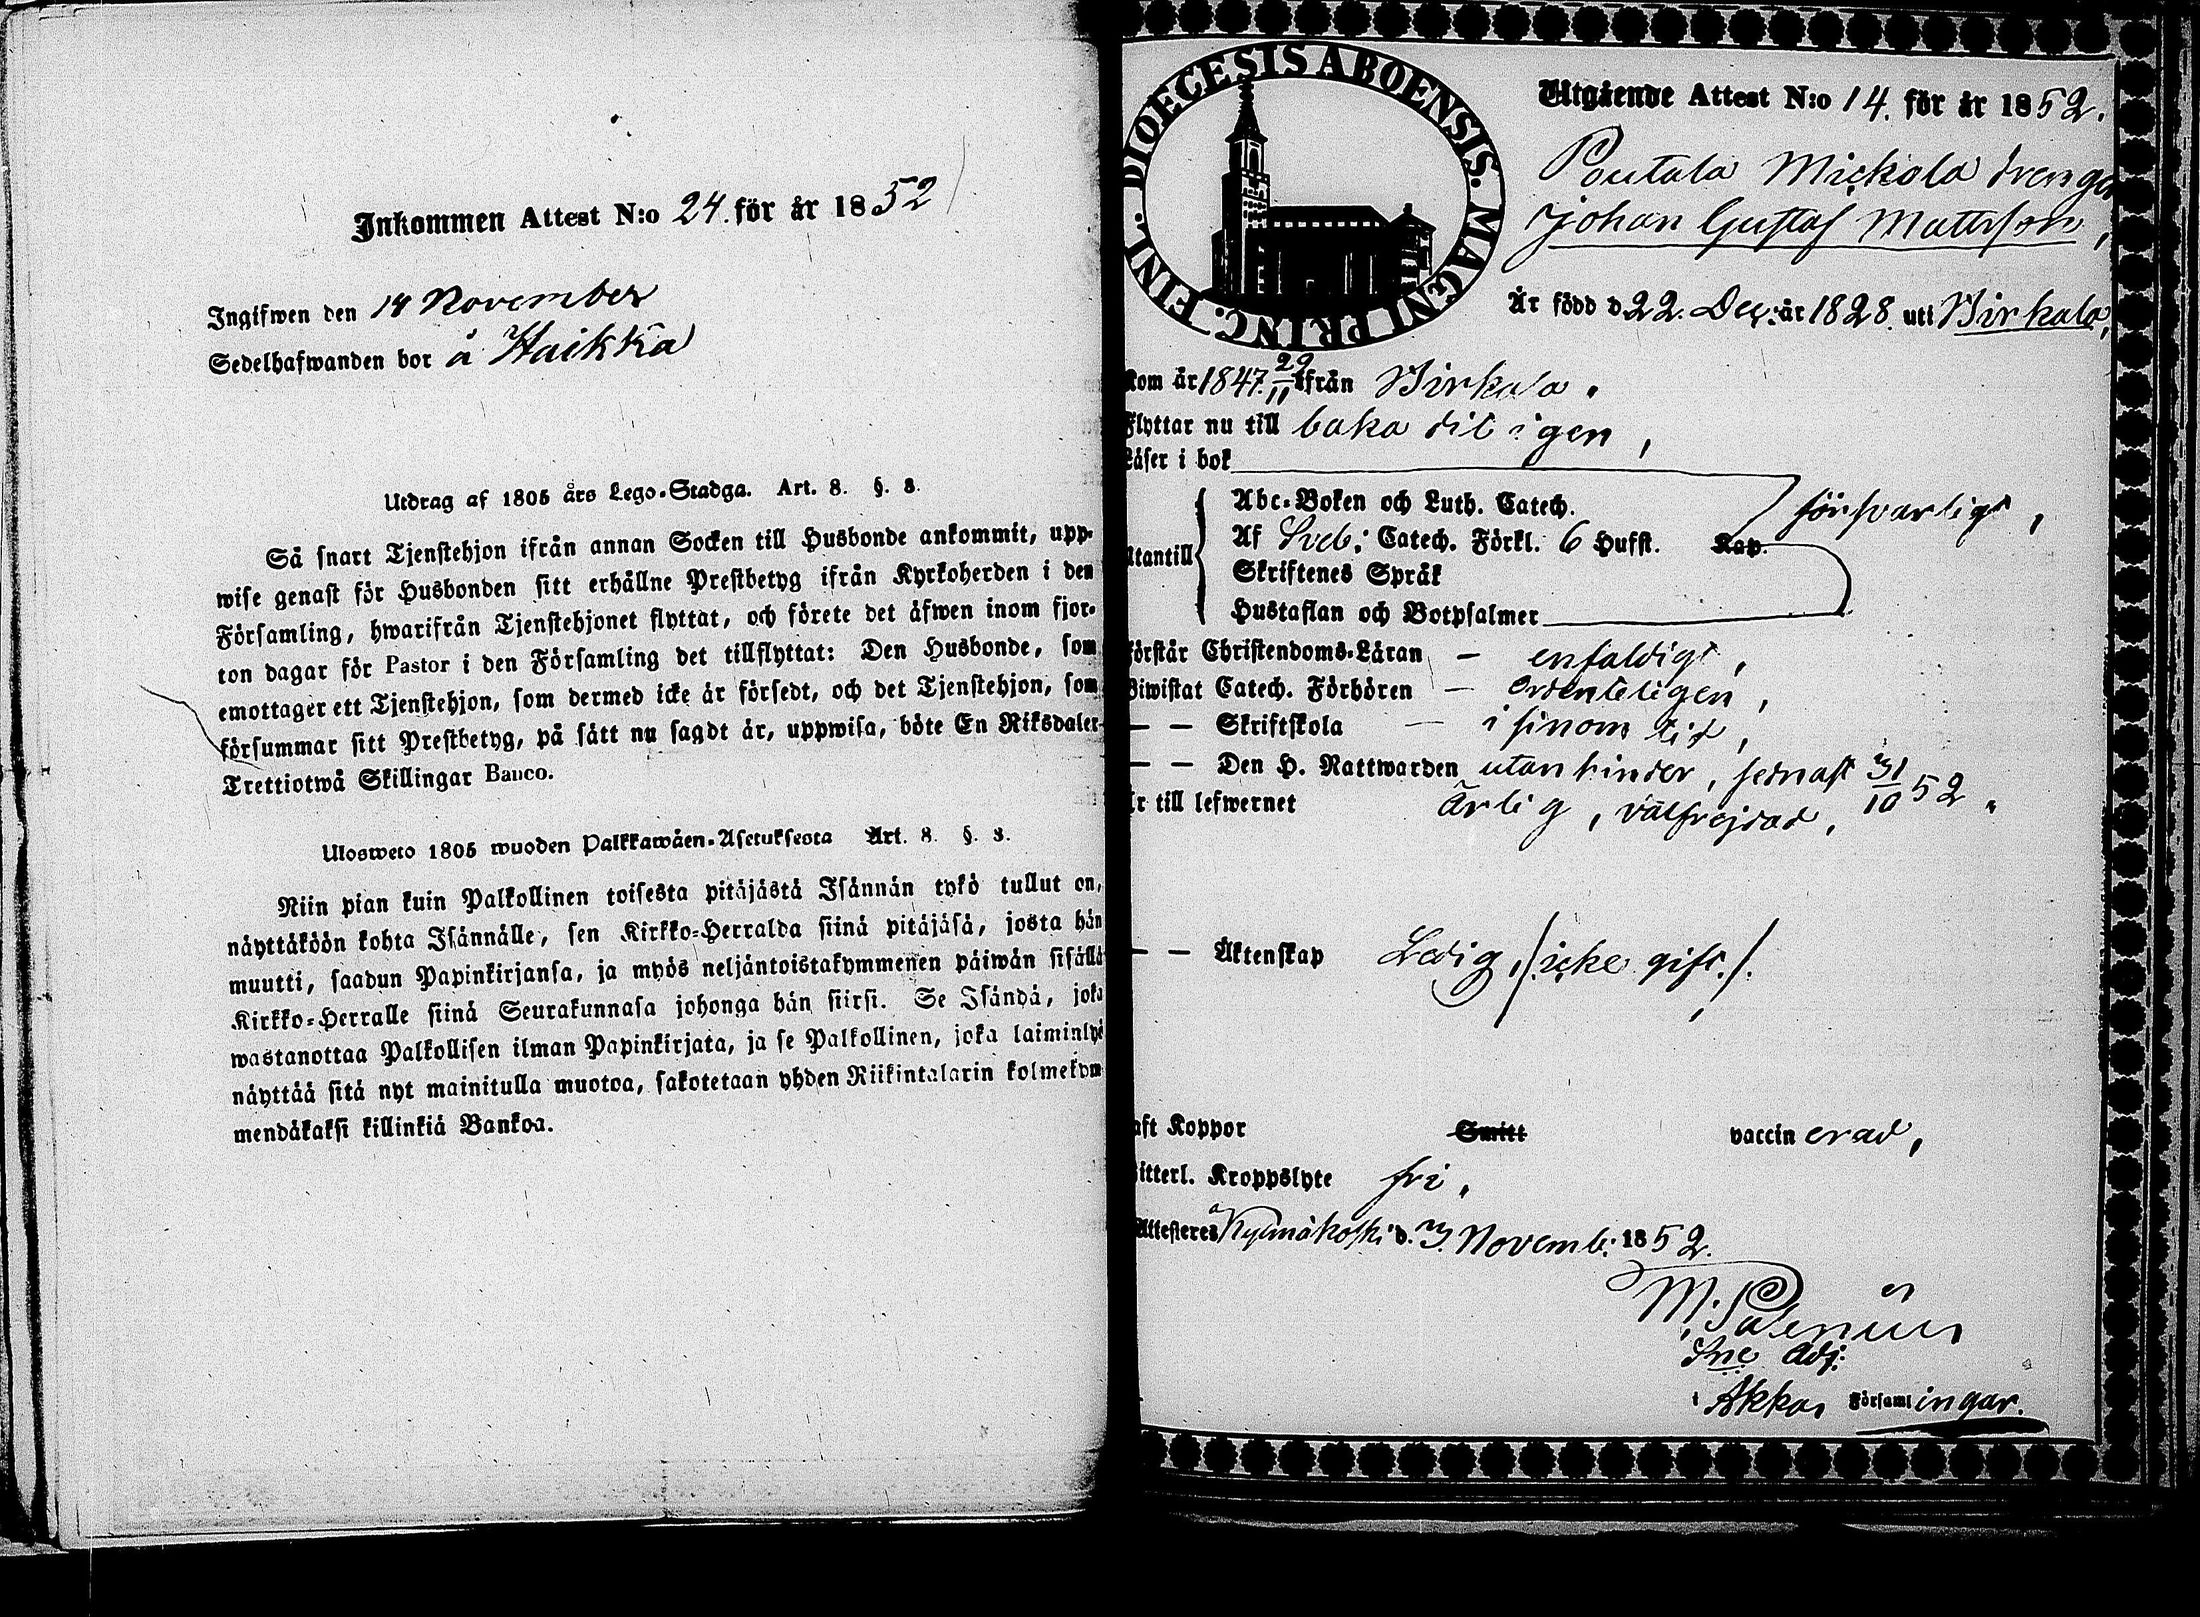 Inkommen Attest N:o 24. för år 1852
Ingifwen den 14 November
Sedelhafwanden bor å Haikka
Utdrag af 1805 års Lego-Stadga. Art. 8. §. 8.
Så snart Tjenstehjon ifrån annan Socken till Husbonde ankommit, upp-
wise genast för Husbonden sitt erhållne Prestbetyg ifrån Kyrkoherden i den
Församling, hwarifrån Tjenstehjonet flyttat, och förete det äfwen inom fjor-
ton dagar för Pastor i den Församling det tillflyttat: Den Husbonde, som
emottager ett Tjenstehjon, som dermed icke är försedt, och det Tjenstehjon, som
försummar sitt Prestbetyg, på sätt nu sagdt är, uppwisa, böte En Riksdaler
Trettiotwå Skillingar Banco.
Ulosweto 1805 wuoden Palkkawäen-Asetuksesta Art. 8. §. 8.
Niin pian kuin Palkollinen toisesta pitäjästä Isännän tykö tullut on,
näyttäköön kohta Isännälle, sen Kirkko-Herralda siinä pitäjäsä, josta hän
muutti, saadun Papinkirjansa, ja myös neljäntoistakymmenen päiwän sisällä
Kirkko-Herralle siinä Seurakunnasa johonga hän siirsi. Se Isändä, joka
wastanottaa Palkollisen ilman Papinkirjata, ja se Palkollinen, joka laiminlyö
näyttää sitä nyt mainitulla muotoa, sakotetaan yhden Riikintalarin kolmekym
mendäkaksi killinkiä Bankoa.
DIOECESIS ABOENSIS. MAGNI PRINC. FINL.
Utgående Attest N:o 14. för år 1852.
Poutala Mickola drengen
Johan Gustaf Mattsson,
År född d. 22. Dec. år 1828 uti Birkala,
kom år 1847 29/11 ifrån Birkala.
Flyttar nu till baka dit igen,
Läser i bok
Abc-Boken och Luth. Catech. försvarligt,
Af Sveb: Catech. Förkl. 6 Hufst. Kap.
Utantill
Skriftenes Språk
Hustaflan och Botpsalmer
Förstår Christendoms-Läran – enfaldigt,
Biwistat Catech. Förhören – ordenteligen,
— — Skriftskola – i sinom tid,
— — Den H. Nattwarden utan hinder, sednast 31/10 52.
Är till lefwernet Ärlig, välfrejdad,
— — Äktenskap Ledig, /: icke gift. /.
haft Koppor Smitt vaccinerad,
Kroppslyte fri.
Attesteres å Kylmäkoski d. 3 Novemb: 1852.
M. Polenius
Adj:
i Akkas Församlingar.